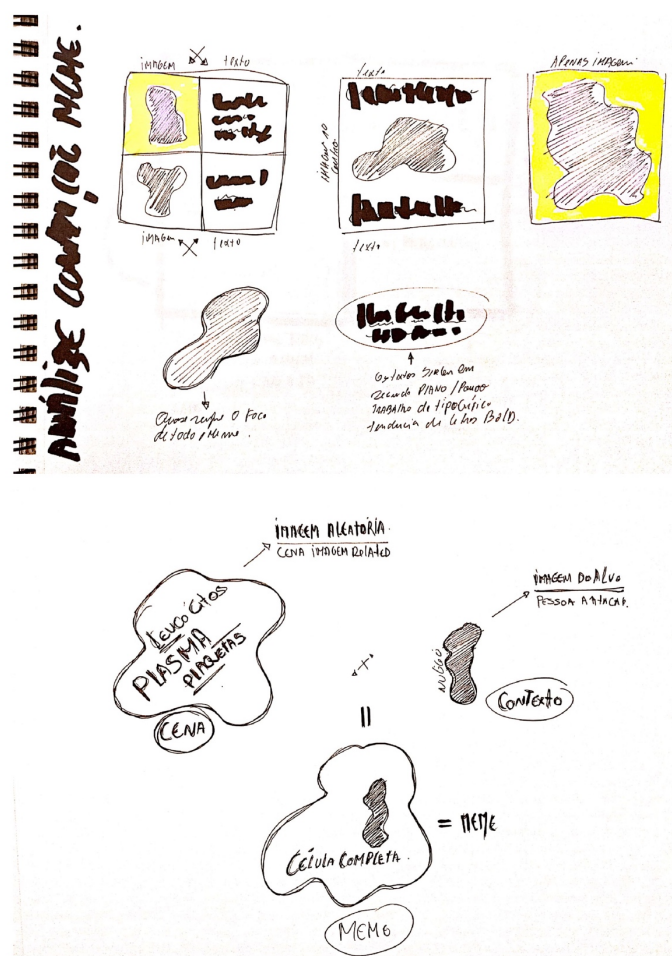 ANÁLIZE MEME.
IMAGEM
TEXTO
IMAGEM
TEXTO
TEXTO
IMAGEM NO
CENTRO
TEXTO
APENAS IMAGEM.
Quase sempre O Foco
de todo o Meme.
Segundo PLANO / Pouco
TRABALHO de tipográfico
tendencia de letras BOLD.
IMAGEM ALEATÓRIA.
CENA IMAGEM
LEUCÓCITOS
PLASMA
PLAQUETAS
CENA
IMAGEM DO ALVO
PESSOA A ATACAR.
CONTEXTO
CÉLULA COMPLETA.
= MEME
MEME